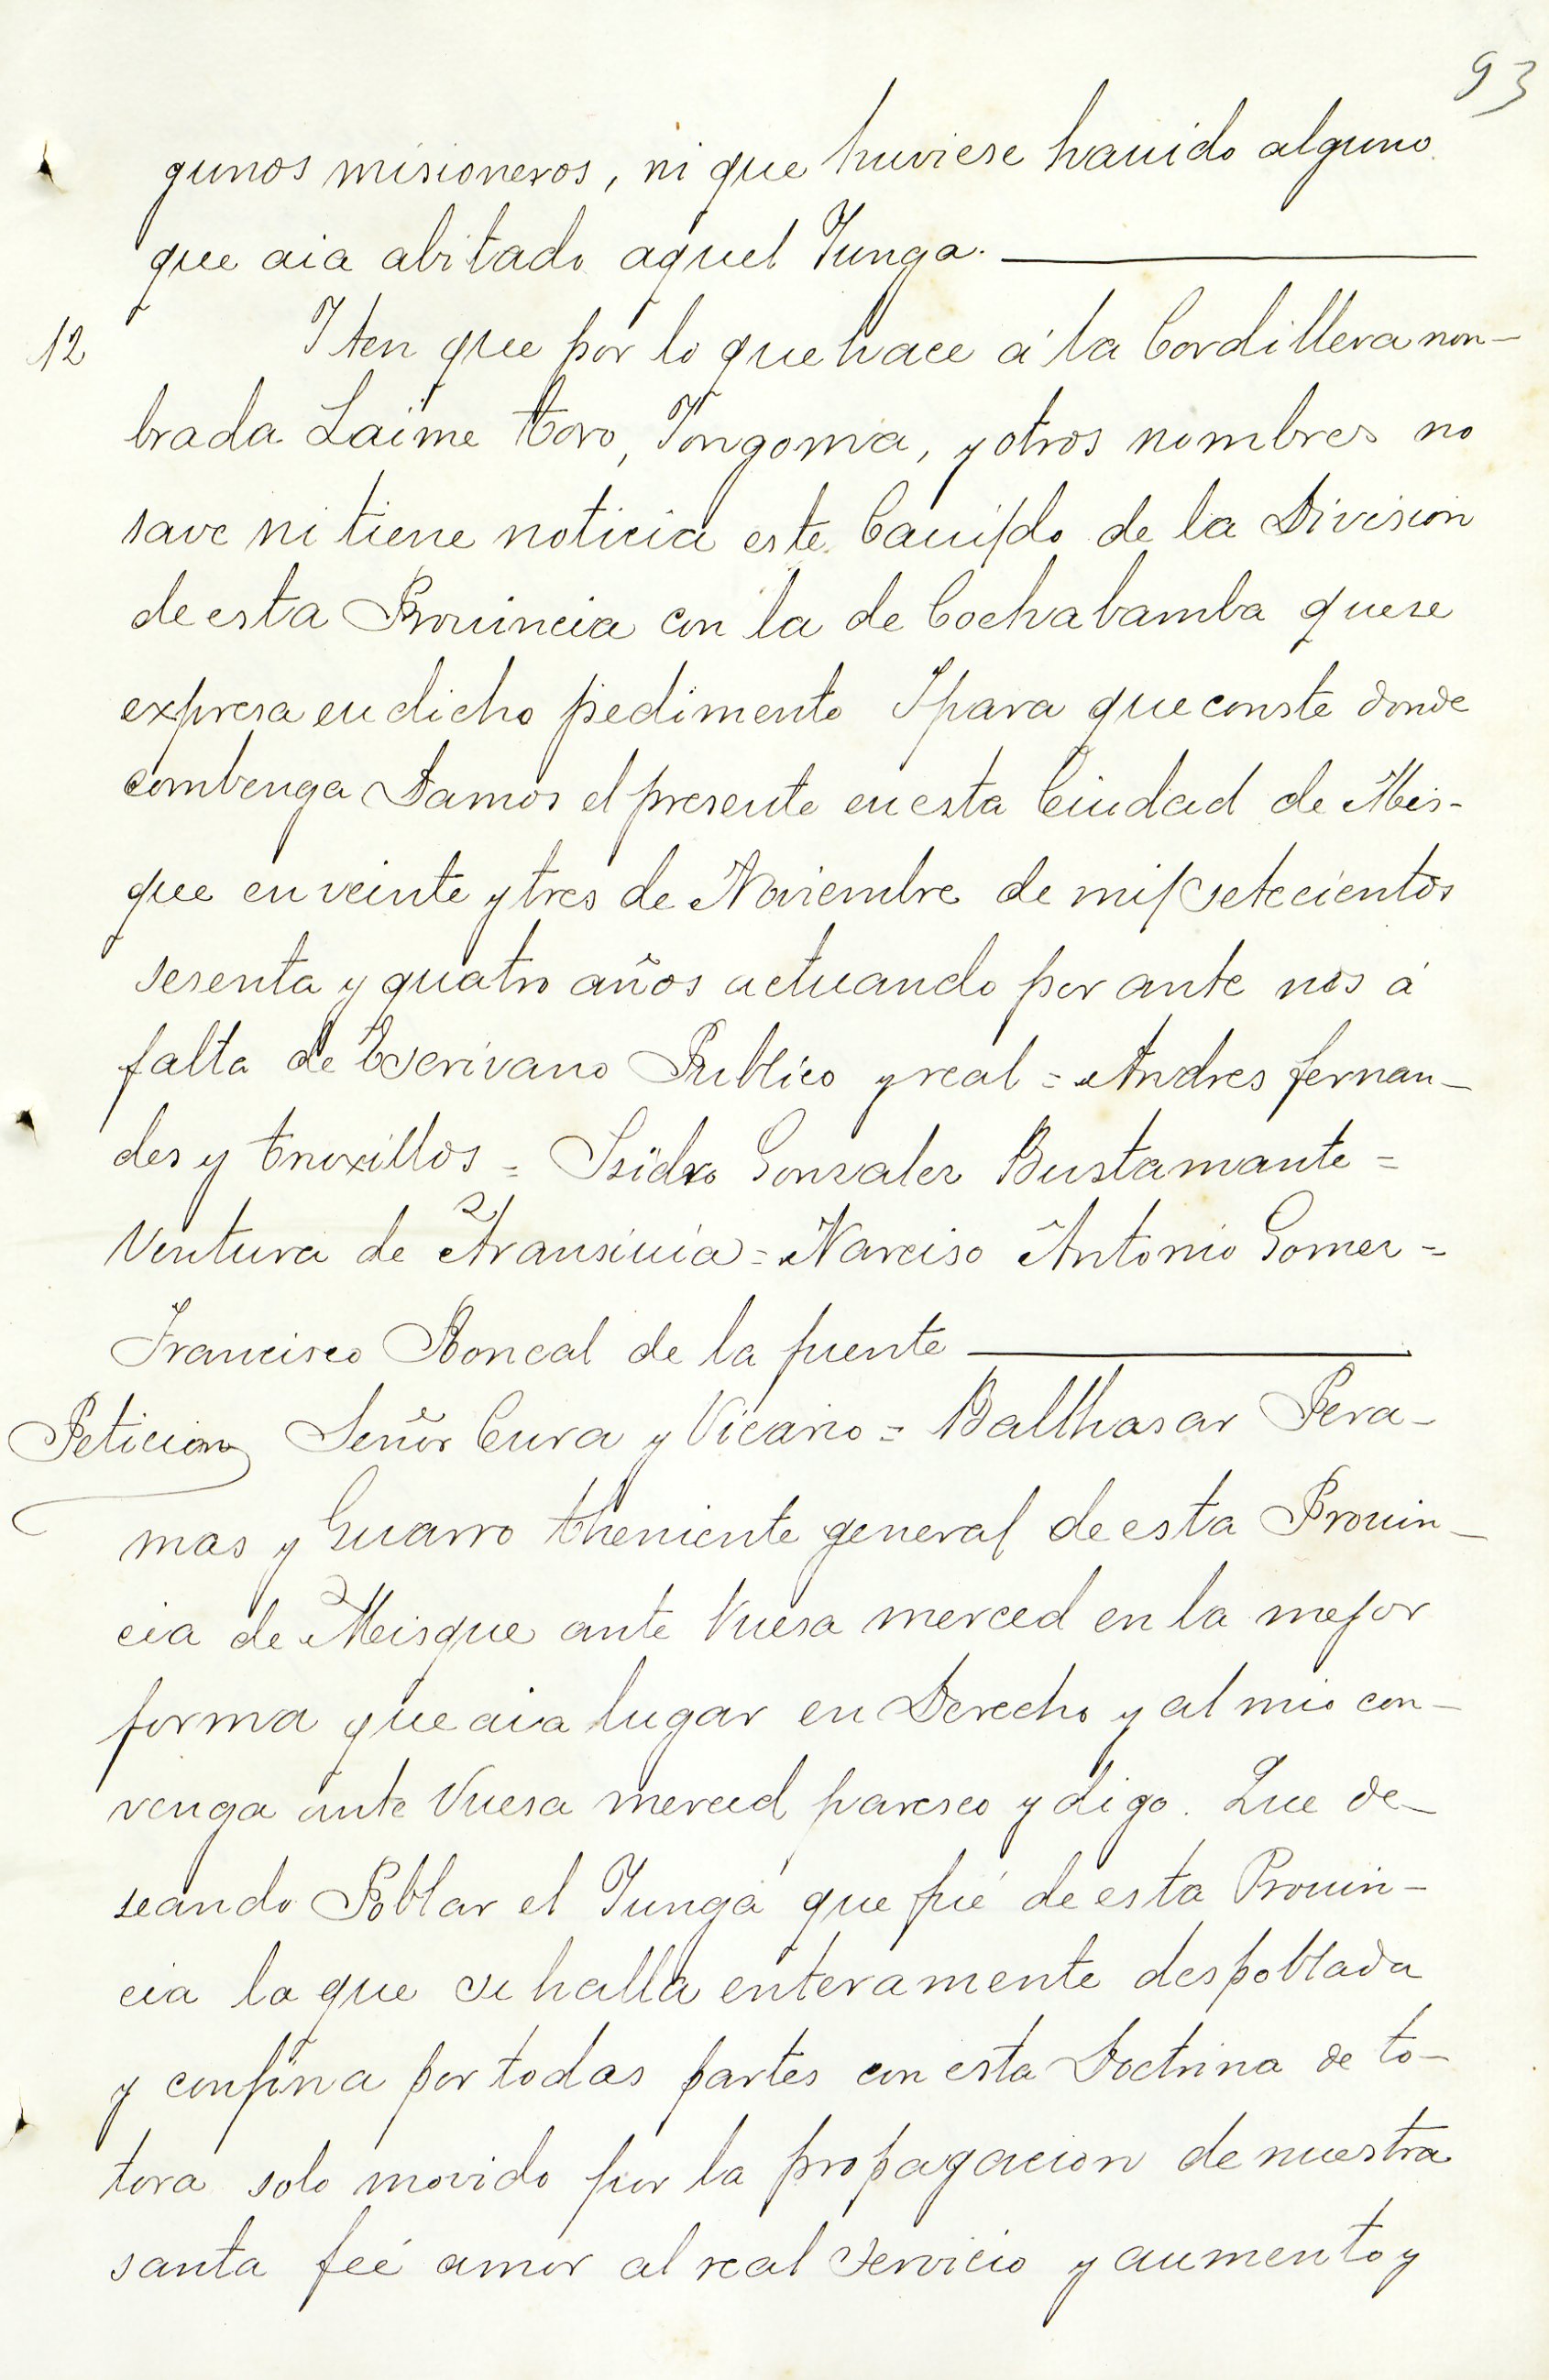 93
gunos misioneros, ni que huviese hauido alguno
que aia abitado aquel Yunga.
12 Iten que por lo que hace á la Cordillera non-
brada Laime toro, Yongoma, y otros nombres no
save ni tiene noticia este Cauildo de la Division
de esta Prouincia con la de Cochabamba que se
expresa en dicho pedimento I para que conste donde
combenga Damos el presente en esta Ciudad de Mis-
que en veinte y tres de Noviembre de mil setecientos
sesenta y quatro años actuando por ante nos á
falta de Escrivano Publico y real = Andres fernan-
des y truxillos = Isidro Gonzalez Bustamante =
Ventura de Aransiuia = Narciso Antonio Gomez =
Francisco Roncal de la fuente
Peticion Señor Cura y Vicario = Balthasar Pera-
mas y Guarro theniente general de esta Prouin-
cia de Misque ante Vuesa merced en la mejor
forma que aia lugar en Derecho y al mio con-
venga ante Vuesa merced paresco y digo. Que de-
seando Poblar el Yunga que fué de esta Prouin-
cia la que se halla enteramente despoblada
y confina por todas partes con esta Doctrina de to-
tora solo movido por la propagacion de nuestra
santa feé amor al real servicio y aumento y